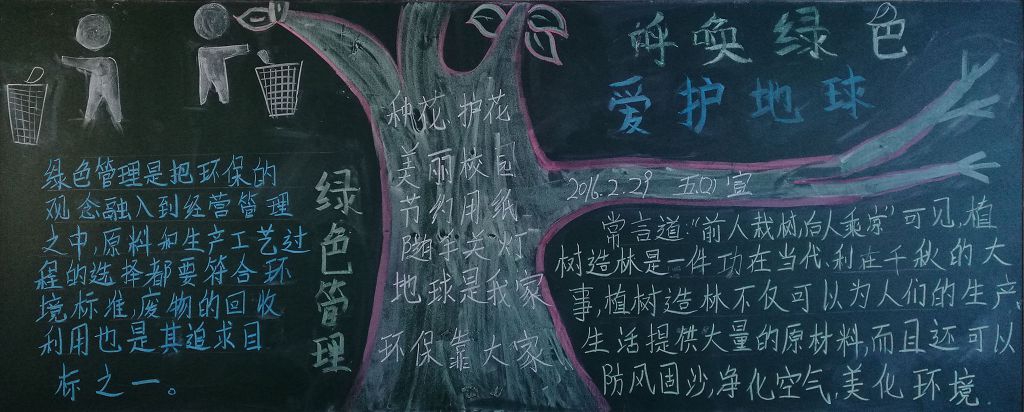 呼唤绿色
爱护地球
绿色管理是把环保的
观念融入到经营管理
之中,原料和生产工艺过
程的选择都要符合环
境标准,废物的回收
利用也是其追求目
标之一。
绿色管理
种花护花
美丽校园
节约用纸
随手关灯
地球是我家
环保靠大家
2016.2.29 五(2)宣
常言道:“前人栽树,后人乘凉”可见,植
树造林是一件功在当代、利在千秋的大
事,植树造林不仅可以为人们的生产、
生活提供大量的原材料,而且还可以
防风固沙,净化空气,美化环境.